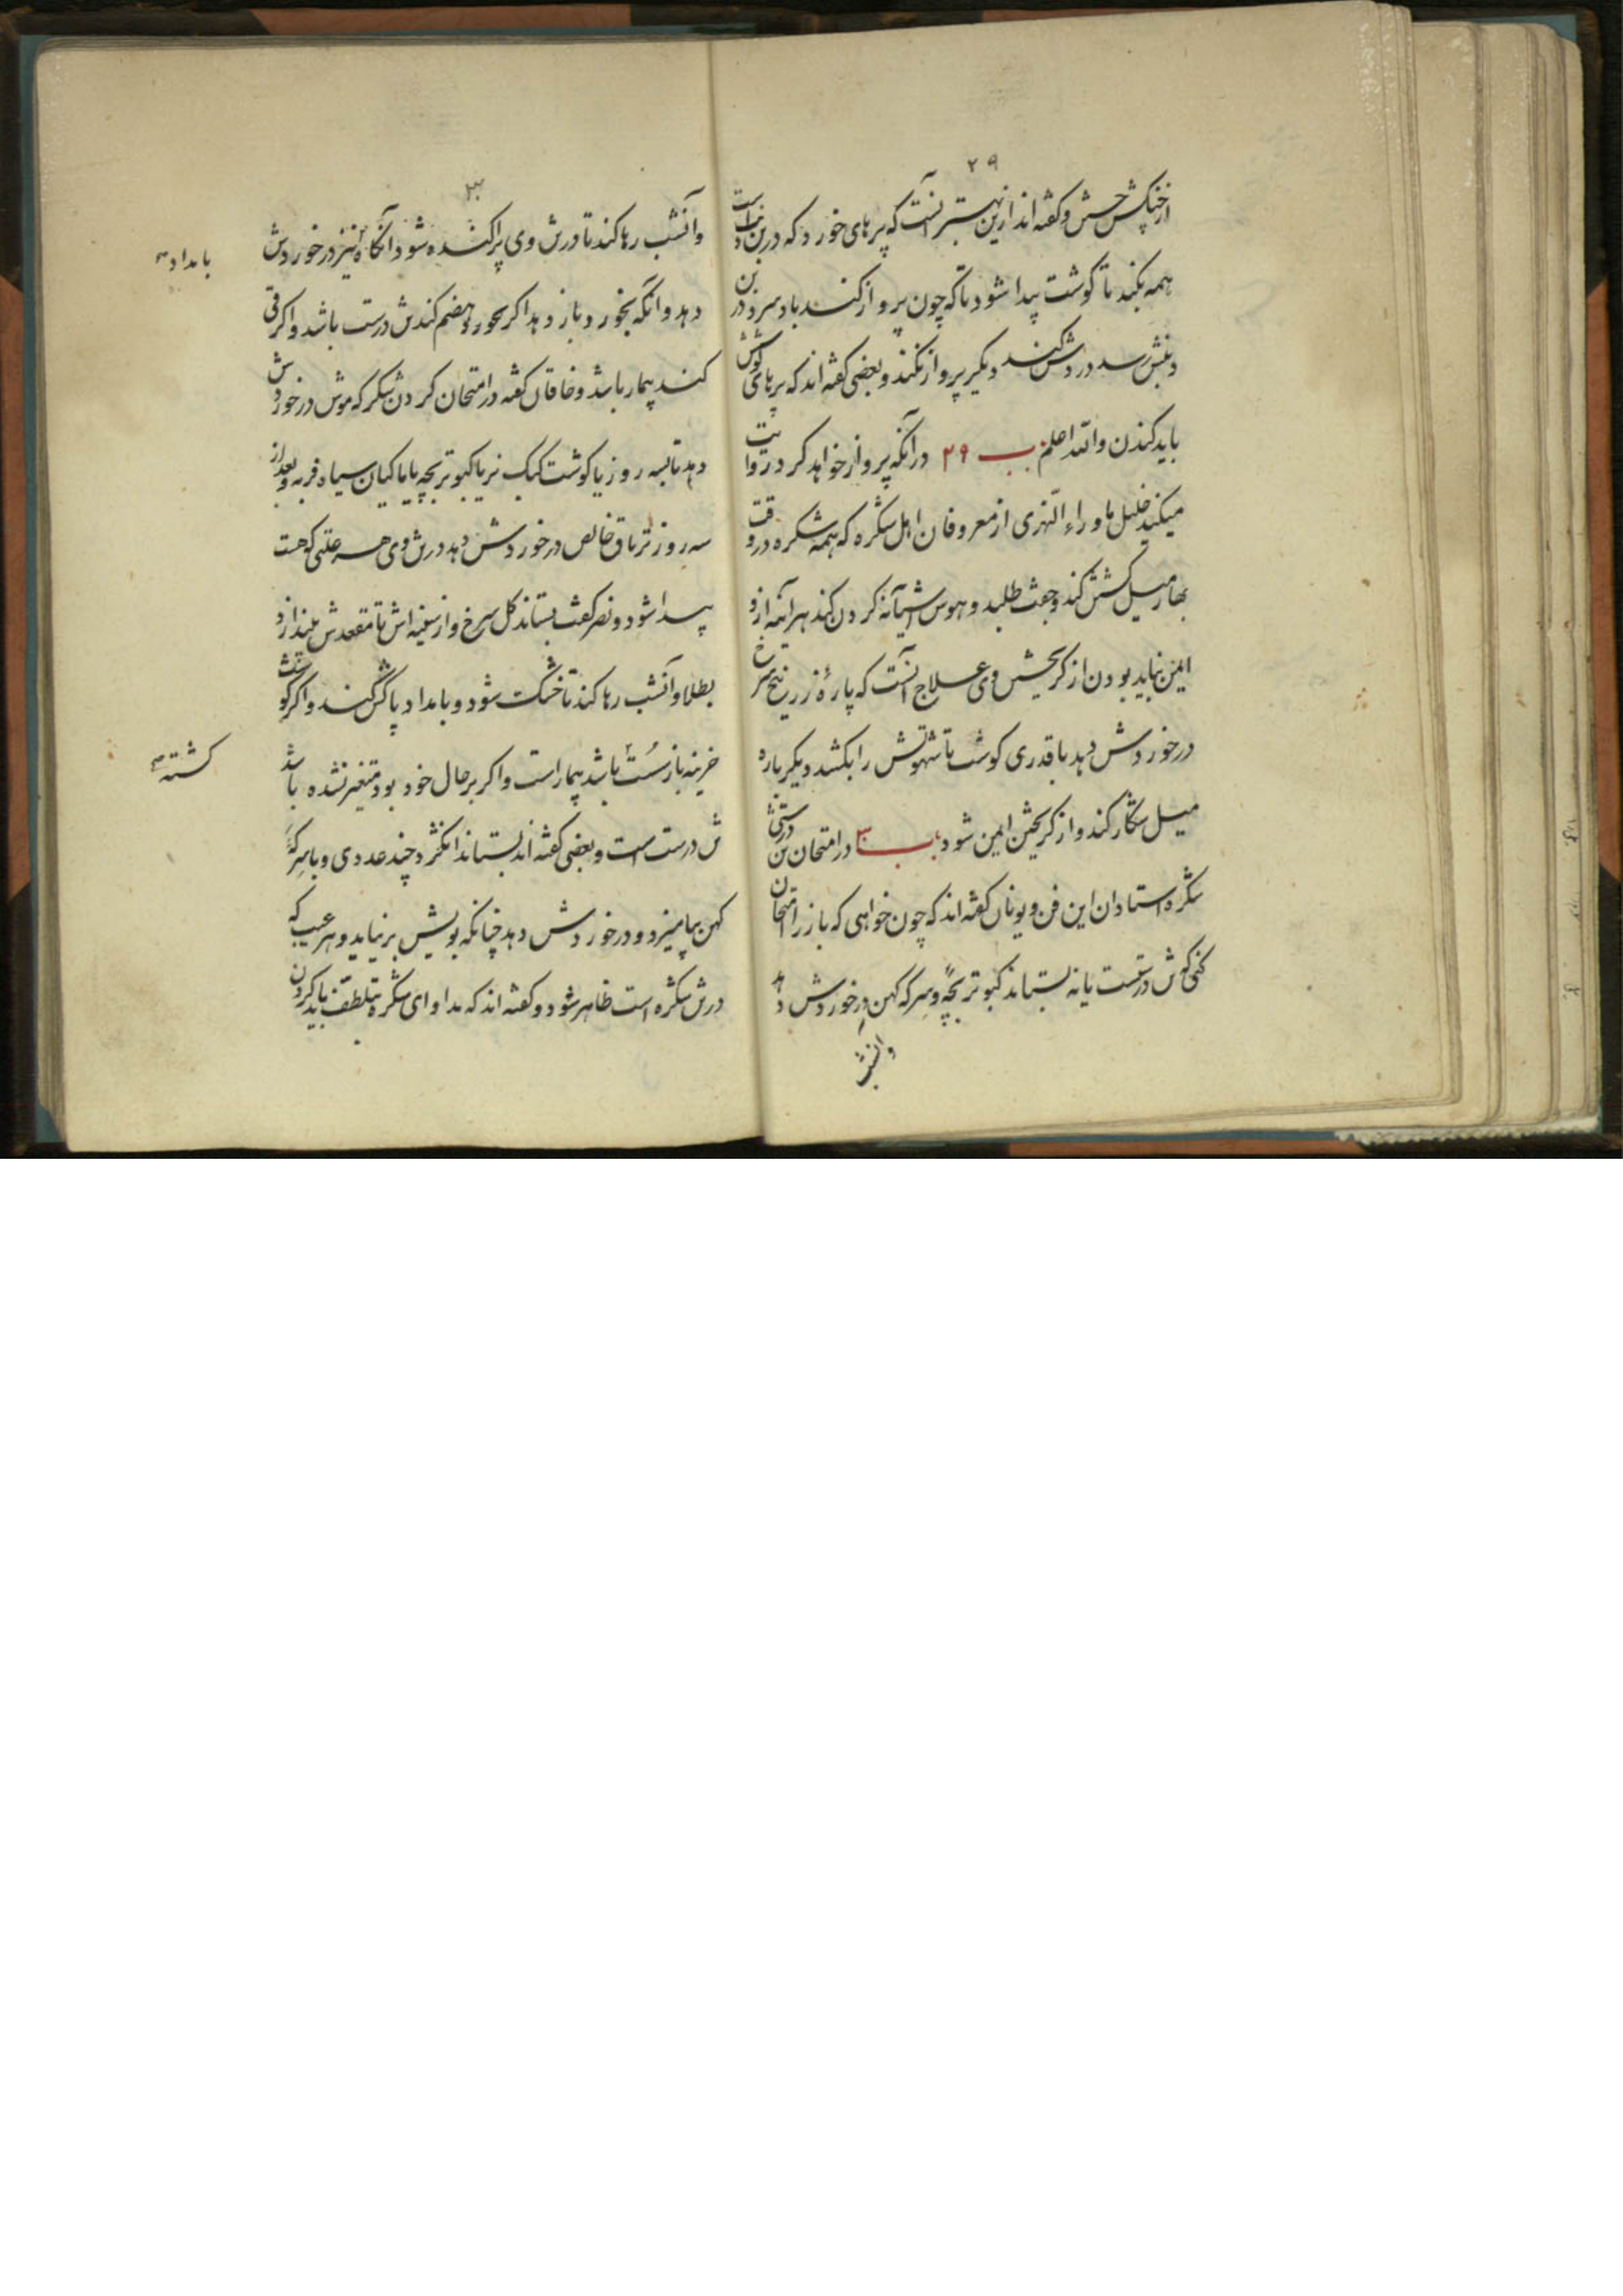 ۲۹
از خپکش حبش و گفته اند ازین بهتر آنست که پرهای خورد که در بن است
همه بکند تا گوشت پیدا شود تا که چون پرواز کند باد سرد در بن
رسد درد کند دیگر پرواز نکند و بعضی گفته اند که پرهای گوشش
باید کندن والله اعلم ب ۲۹ در آنکه پرواز خواهد کرد روایت
میکند خلیل ماوراء النهری از معروفان اهل شکره که همه شکره در وقت
بهار میل گشتن کند و جفت طلبد و هوس آشیانه کردن کند هر آینه ازو
ایمن نباید بودن از گریختن وی علاج آنست که پارهٔ زرنیخ سرخ
در خوردش دهد با قدری گوشت تا شهوتش را بکشد دیگر باره
میل شکار کند و از گریختن ایمن شود ب ۳۰ در امتحان تن درستی
شکره استادان این فن و یونان گفته اند که چون خواهی که باز را امتحان
کنی که درستست یا نه بستاند کبوتر بچه و سرکه کهن در خوردش دهد
وانشب
۳۰
وآنشب رها کند تا درش وی پراکنده شود آنگاه نیز در خوردش
بامداد
دهد وانگه بخورد باز دهد اگر بخورد و هضم کندش درست باشد و اگر قی
کند بیمار باشد و خاقان گفته در امتحان کردن شکره که موش در خوردش
دهد تا سه روز یا گوشت کبک نر یا کبوتر بچه یا ماکیان سیاه فربه و بعد از
سه روز تریاق خالص در خوردش دهد درش وی هر علتی که هست
پیدا شود و نصر گفت بستاند گل سرخ و از سینه اش تا مقعدش بیندازد
بطلا و آنشب رها کند تا خشک شود و بامداد پاکش کند و اگر گوشتش
خربنه باز سست باشد بیمار است و اگر بر حال خود بود متغیر نشده باشد
کشته
ش درست است و بعضی گفته اند بستاند انگژد چند عددی و با سرکهٔ
کهن بیامیزد و در خوردش دهد چنانکه بویش بر نیاید و هر عیب که
درش شکره است ظاهر شود و گفته اند که مداوای شکره بتلطف باید کردن